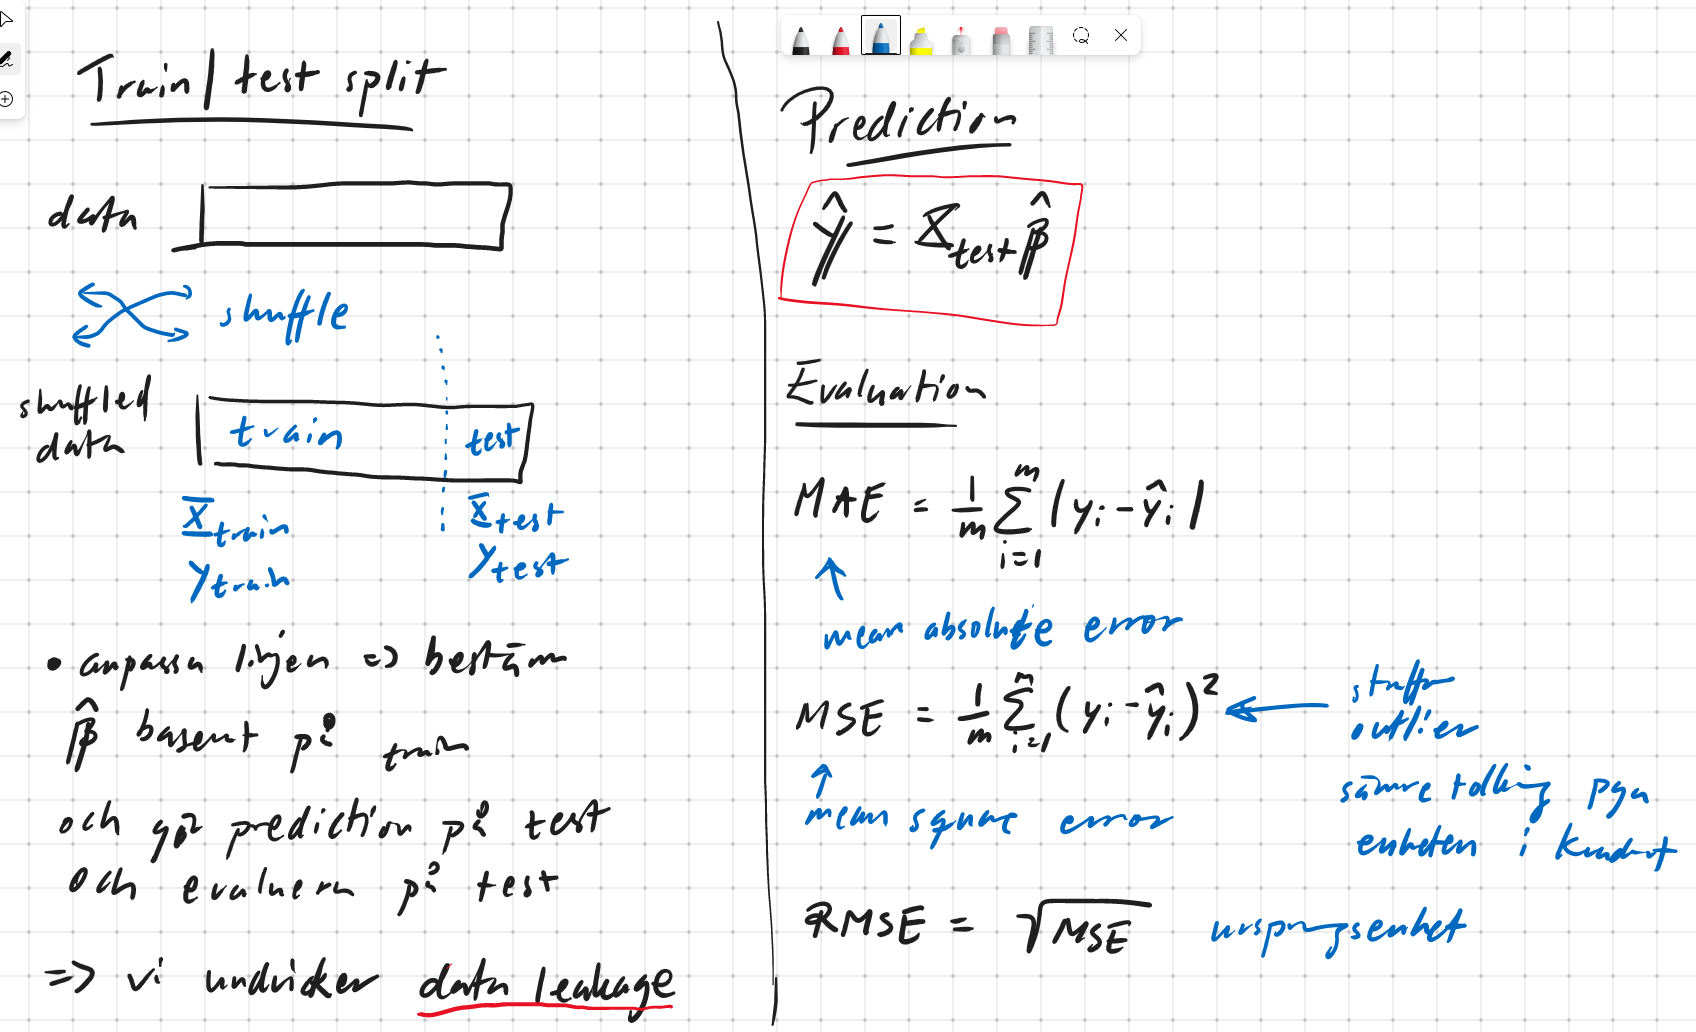 Train/test split
data
shuffle
shuffled
data
train
test
X train
y train
X test
y test
• anpassa linjen => bestäm
β̂ baserat på train
och gör prediction på test
och evaluera på test
=> vi undviker data leakage
Prediction
ŷ = X test β̂
Evaluation
MAE = 1/m Σ_{i=1}^{m} |yi - ŷi|
mean absolute error
MSE = 1/m Σ_{i=1}^{m} (yi - ŷi)²
straffar
outlier
mean square error
sämre tolkning pga
enheten i kvadrat
RMSE = √MSE
ursprungsenhet